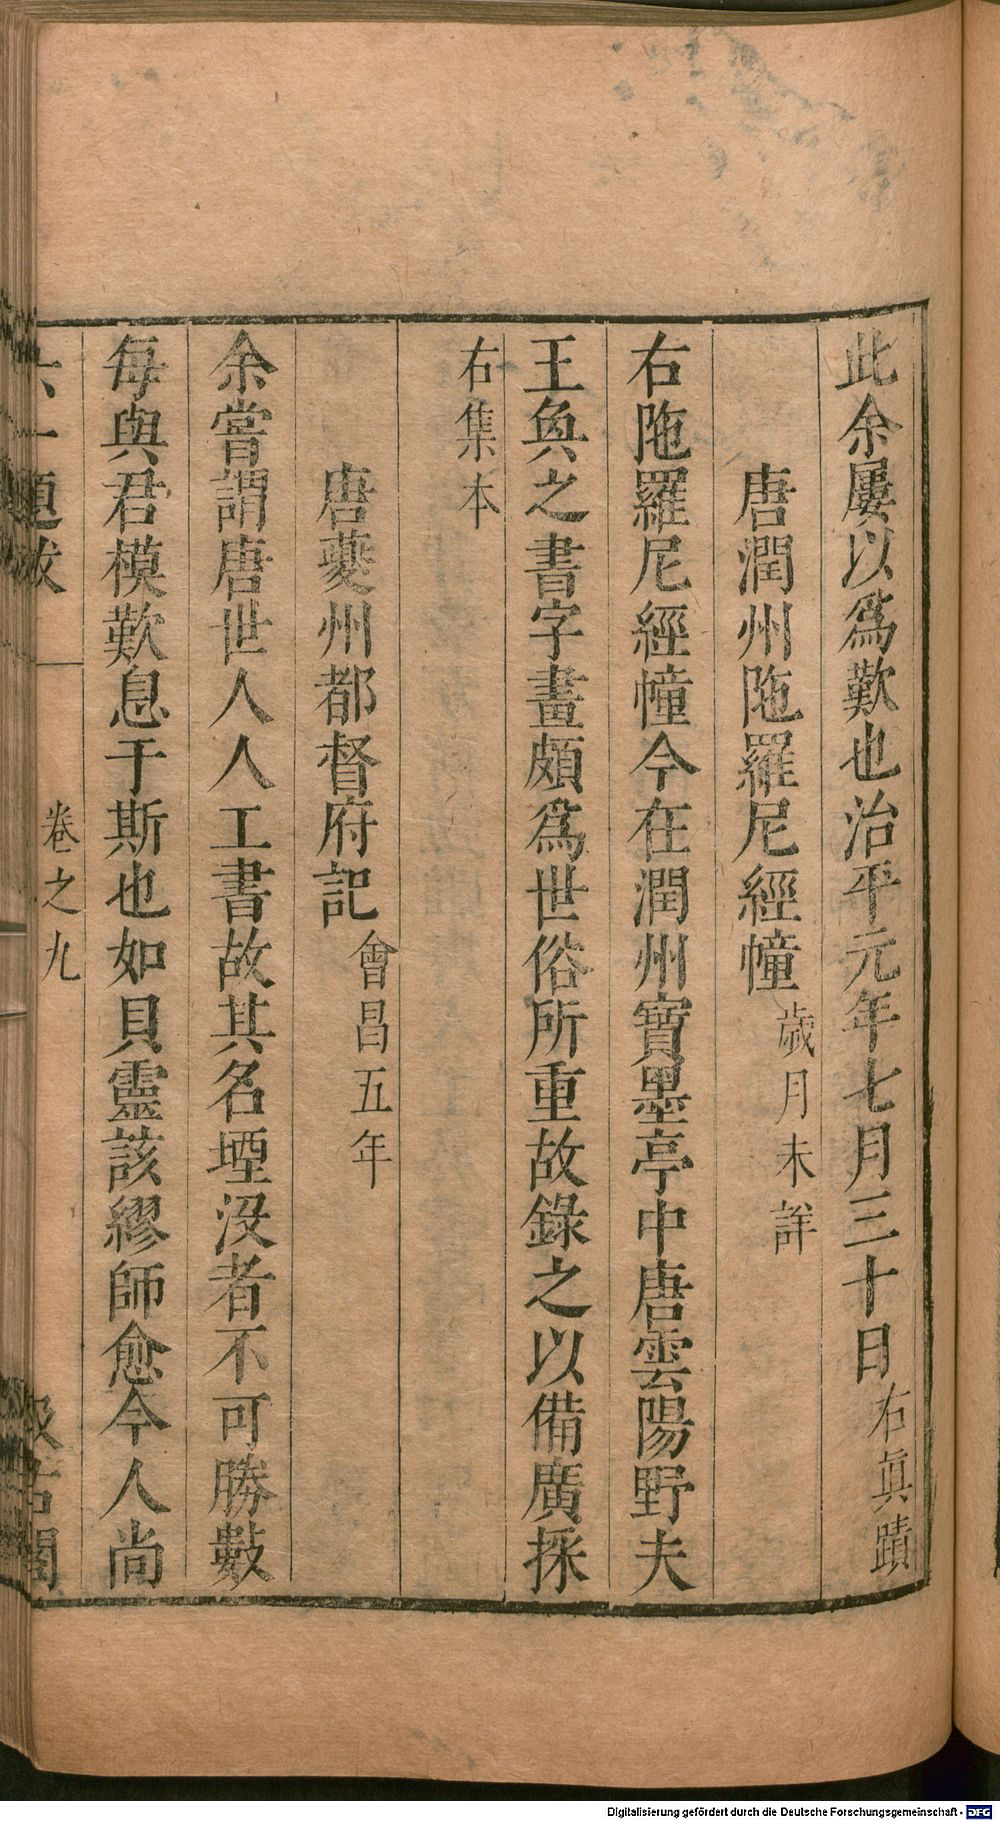 此余屢以爲歎也治平元年七月三十日右眞蹟
唐潤州陁羅尼經幢歲月未詳
右陁羅尼經幢今在潤州寶墨亭中唐雲陽野夫
王奐之書字畫頗爲世俗所重故錄之以備廣採
右集本
唐夔州都督府記會昌五年
余嘗謂唐世人人工書故其名堙沒者不可勝數
每與君模歎息于斯也如貝靈該繆師愈今人尚
六一題跋 卷之九 汲古閣
Digitalisierung gefördert durch die Deutsche Forschungsgemeinschaft - DFG